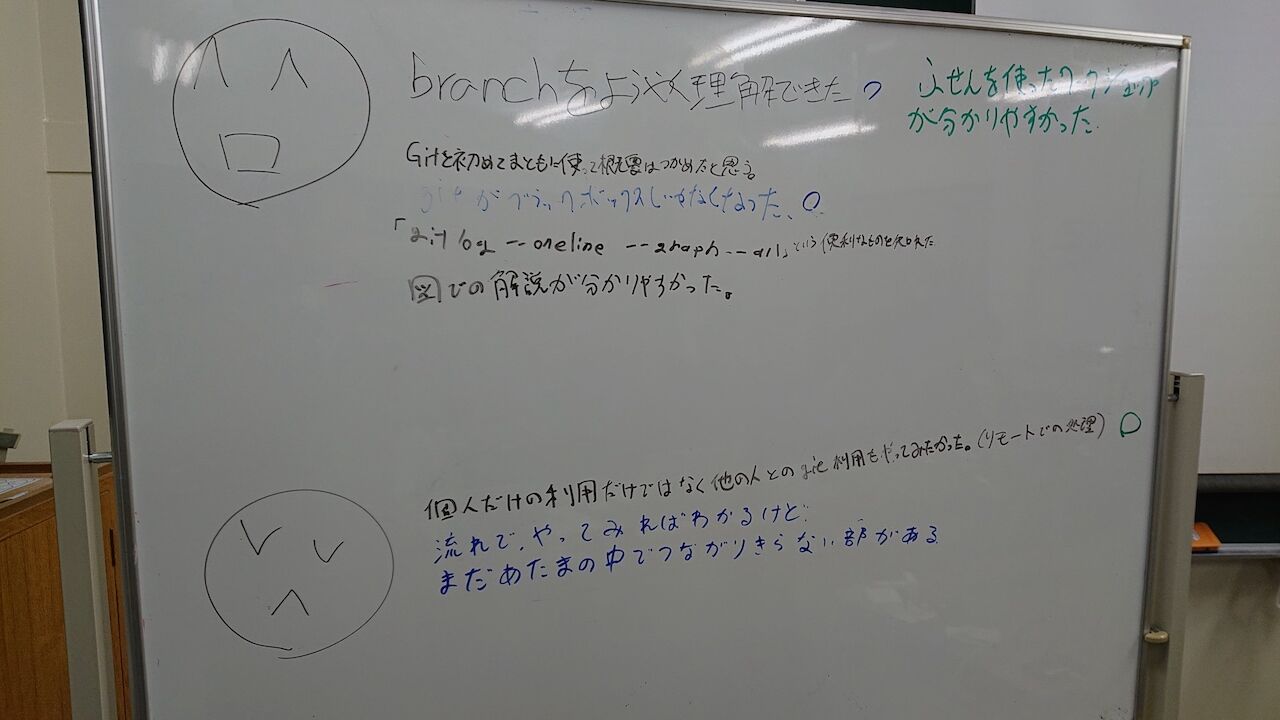 branchをようやく理解できた
ふせんを使ったワークショップ
が分かりやすかった.
Gitを初めてまともに使って概要はつかめたと思う
gitがブラックボックスじゃなくなった、
「git log --oneline --graph --all」という便利なものを知れた
図での解説が分かりやすかった。
個人だけの利用だけではなく他の人とのgit利用もやってみたかった。(リモートでの処理)
流れで、やってみればわかるけど
まだあたまの中でつながりきらない部がある